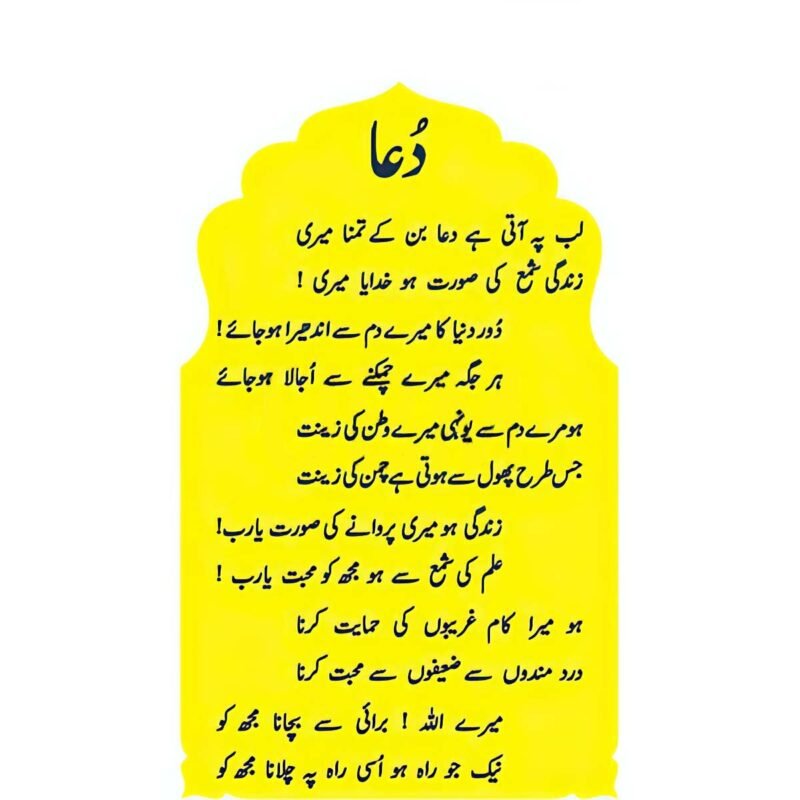 دُعا
لب پہ آتی ہے دعا بن کے تمنا میری
زندگی شمع کی صورت ہو خدایا میری !
دُور دنیا کا میرے دم سے اندھیرا ہوجائے !
ہر جگہ میرے چمکنے سے اُجالا ہوجائے
ہو مرے دم سے یونہی میرے وطن کی زینت
جس طرح پھول سے ہوتی ہے چمن کی زینت
زندگی ہو میری پروانے کی صورت یارب!
علم کی شمع سے ہو مجھ کو محبت یارب !
ہو میرا کام غریبوں کی حمایت کرنا
درد مندوں سے ضعیفوں سے محبت کرنا
میرے اللہ ! برائی سے بچانا مجھ کو
نیک جو راہ ہو اُسی راہ پہ چلانا مجھ کو